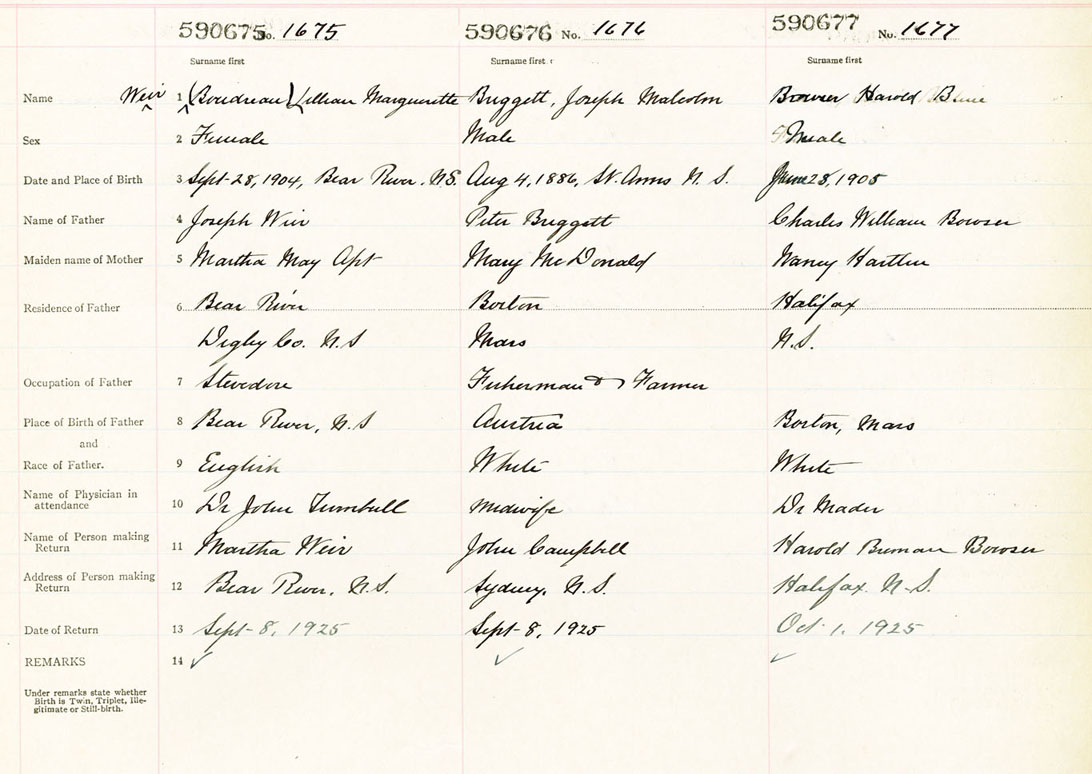 590675 No. 1675 590676 No. 1676 590677 No. 1677
Surname first Surname first Surname first
Name Weir 1 (Boudreau) Lillian Marguerette Briggett, Joseph Malcolm Bowser Harold
Sex 2 Female Male Male
Date and Place of Birth 3 Sept-28, 1904, Bear River. N.S. Aug 4, 1886, St. Anns N. S. June 28, 1905
Name of Father 4 Joseph Weir Peter Briggett Charles William Bowser
Maiden name of Mother 5 Martha May Apt Mary McDonald Nancy
Residence of Father 6 Bear River Boston Halifax
Digby Co. N.S Mass N.S.
Occupation of Father 7 Stevedore Fisherman & Farmer
Place of Birth of Father 8 Bear River, N.S Austria Boston, Mass
and
Race of Father. 9 English White White
Name of Physician in
attendance 10 Dr John Turnbull Midwife Dr Mader
Name of Person making
Return 11 Martha Weir John Campbell Harold Bowser
Address of Person making
Return 12 Bear River, N.S. Sydney, N.S. Halifax N.S.
Date of Return 13 Sept-8, 1925 Sept-8, 1925 Oct. 1. 1925
REMARKS 14 ✓ ✓ ✓
Under remarks state whether
Birth is Twin, Triplet, Ille-
gitimate or Still-birth.